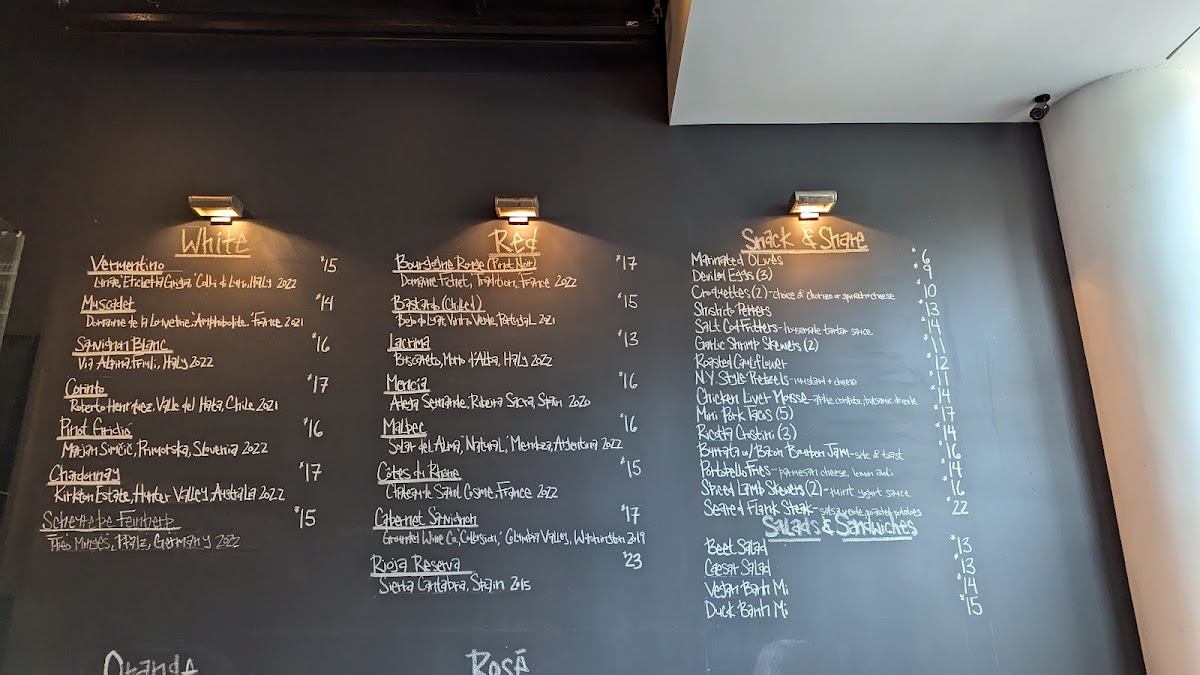 White
Vermentino $15
Lunae, Etichetta Grigia, Colli di Luni, Italy 2022
Muscadet $14
Domaine de la "Amphibolite" France 2021
Sauvignon Blanc $16
Via Alpina, Friuli, Italy 2022
Corinto $17
Roberto Henriquez, Valle del Itata, Chile 2021
Pinot Grigio $16
Marjan Simčič, Primorska, Slovenia 2022
Chardonnay $17
Kirkton Estate, Hunter Valley, Australia 2022
Scheurebe Feinherb $15
Theo Minges, Pfalz, Germany 2022
Orange
Red
Bourgogne Rouge (Pinot Noir) $17
Domaine Fichet, Tradition, France 2022
Bastardo (Chilled) $15
Vinho Verde, Portugal 2021
Lacrima $13
Morro d'Alba, Italy 2022
Mencia $16
Ribeira Sacra, Spain 2020
Malbec $16
Solar del Alma, 'Natural,' Mendoza, Argentina 2022
Côtes du Rhône $15
Château de Saint Cosme, France 2022
Cabernet Sauvignon $17
Gramercy Wine Co, Columbia Valley, Washington 2019
Rioja Reserva $23
Sierra Cantabria, Spain 2015
Rosé
Snack & Share
Marinated Olives $6
Deviled Eggs (3) $9
Croquettes (2) - choice of chorizo or spinach + cheese $10
Shishito Peppers $13
Salt Cod Fritters - housemade tartar sauce $14
Garlic Shrimp Skewers (2) $11
Roasted Cauliflower $12
N.Y. Style Pretzels - mustard + cheese $11
Chicken Liver Mousse - apple compote, balsamic drizzle $14
Mini Pork Tacos (5) $17
Ricotta Crostini (3) $14
Burrata w/ Bacon Bourbon Jam - side of toast $16
Portobello Fries - parmesan cheese, lemon aioli $14
Spiced Lamb Skewers (2) - mint yogurt sauce $16
Seared Flank Steak - salsa verde, roasted potatoes $22
Salads & Sandwiches
Beet Salad $13
Caesar Salad $13
Vegan Banh Mi $14
Duck Banh Mi $15